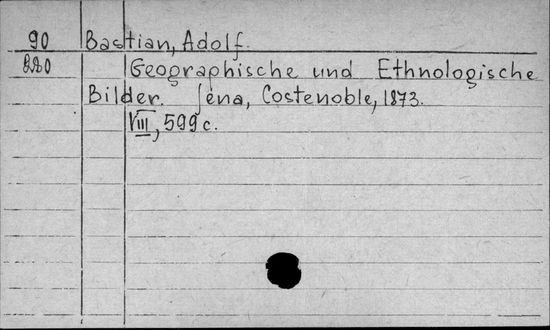 90 Bastian, Adolf.
220 Geographische und Ethnologische
Bilder. Jena, Costenoble, 1873.
VIII, 599 c.